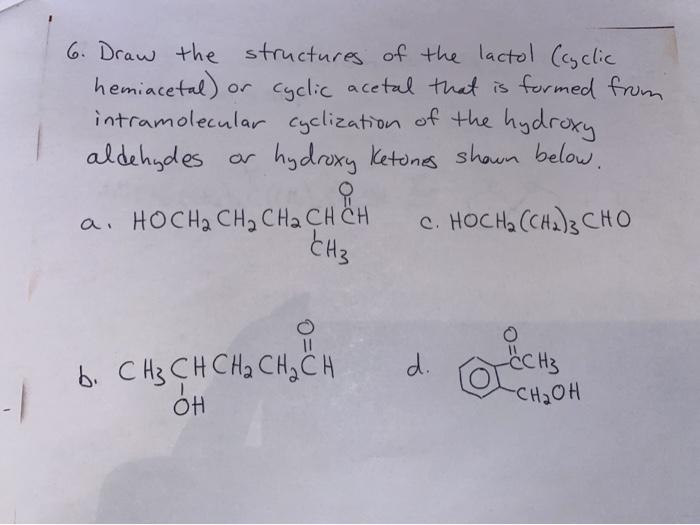 6. Draw the structures of the lactol (cyclic
hemiacetal) or cyclic acetal that is formed from
intramolecular cyclization of the hydroxy
aldehydes or hydroxy ketones shown below.
O
a. HOCH₂CH₂CH₂CHCH c. HOCH₂(CH₂)₃CHO
CH₃
O O
b. CH₃CHCH₂CH₂CH d. CCH₃
OH CH₂OH